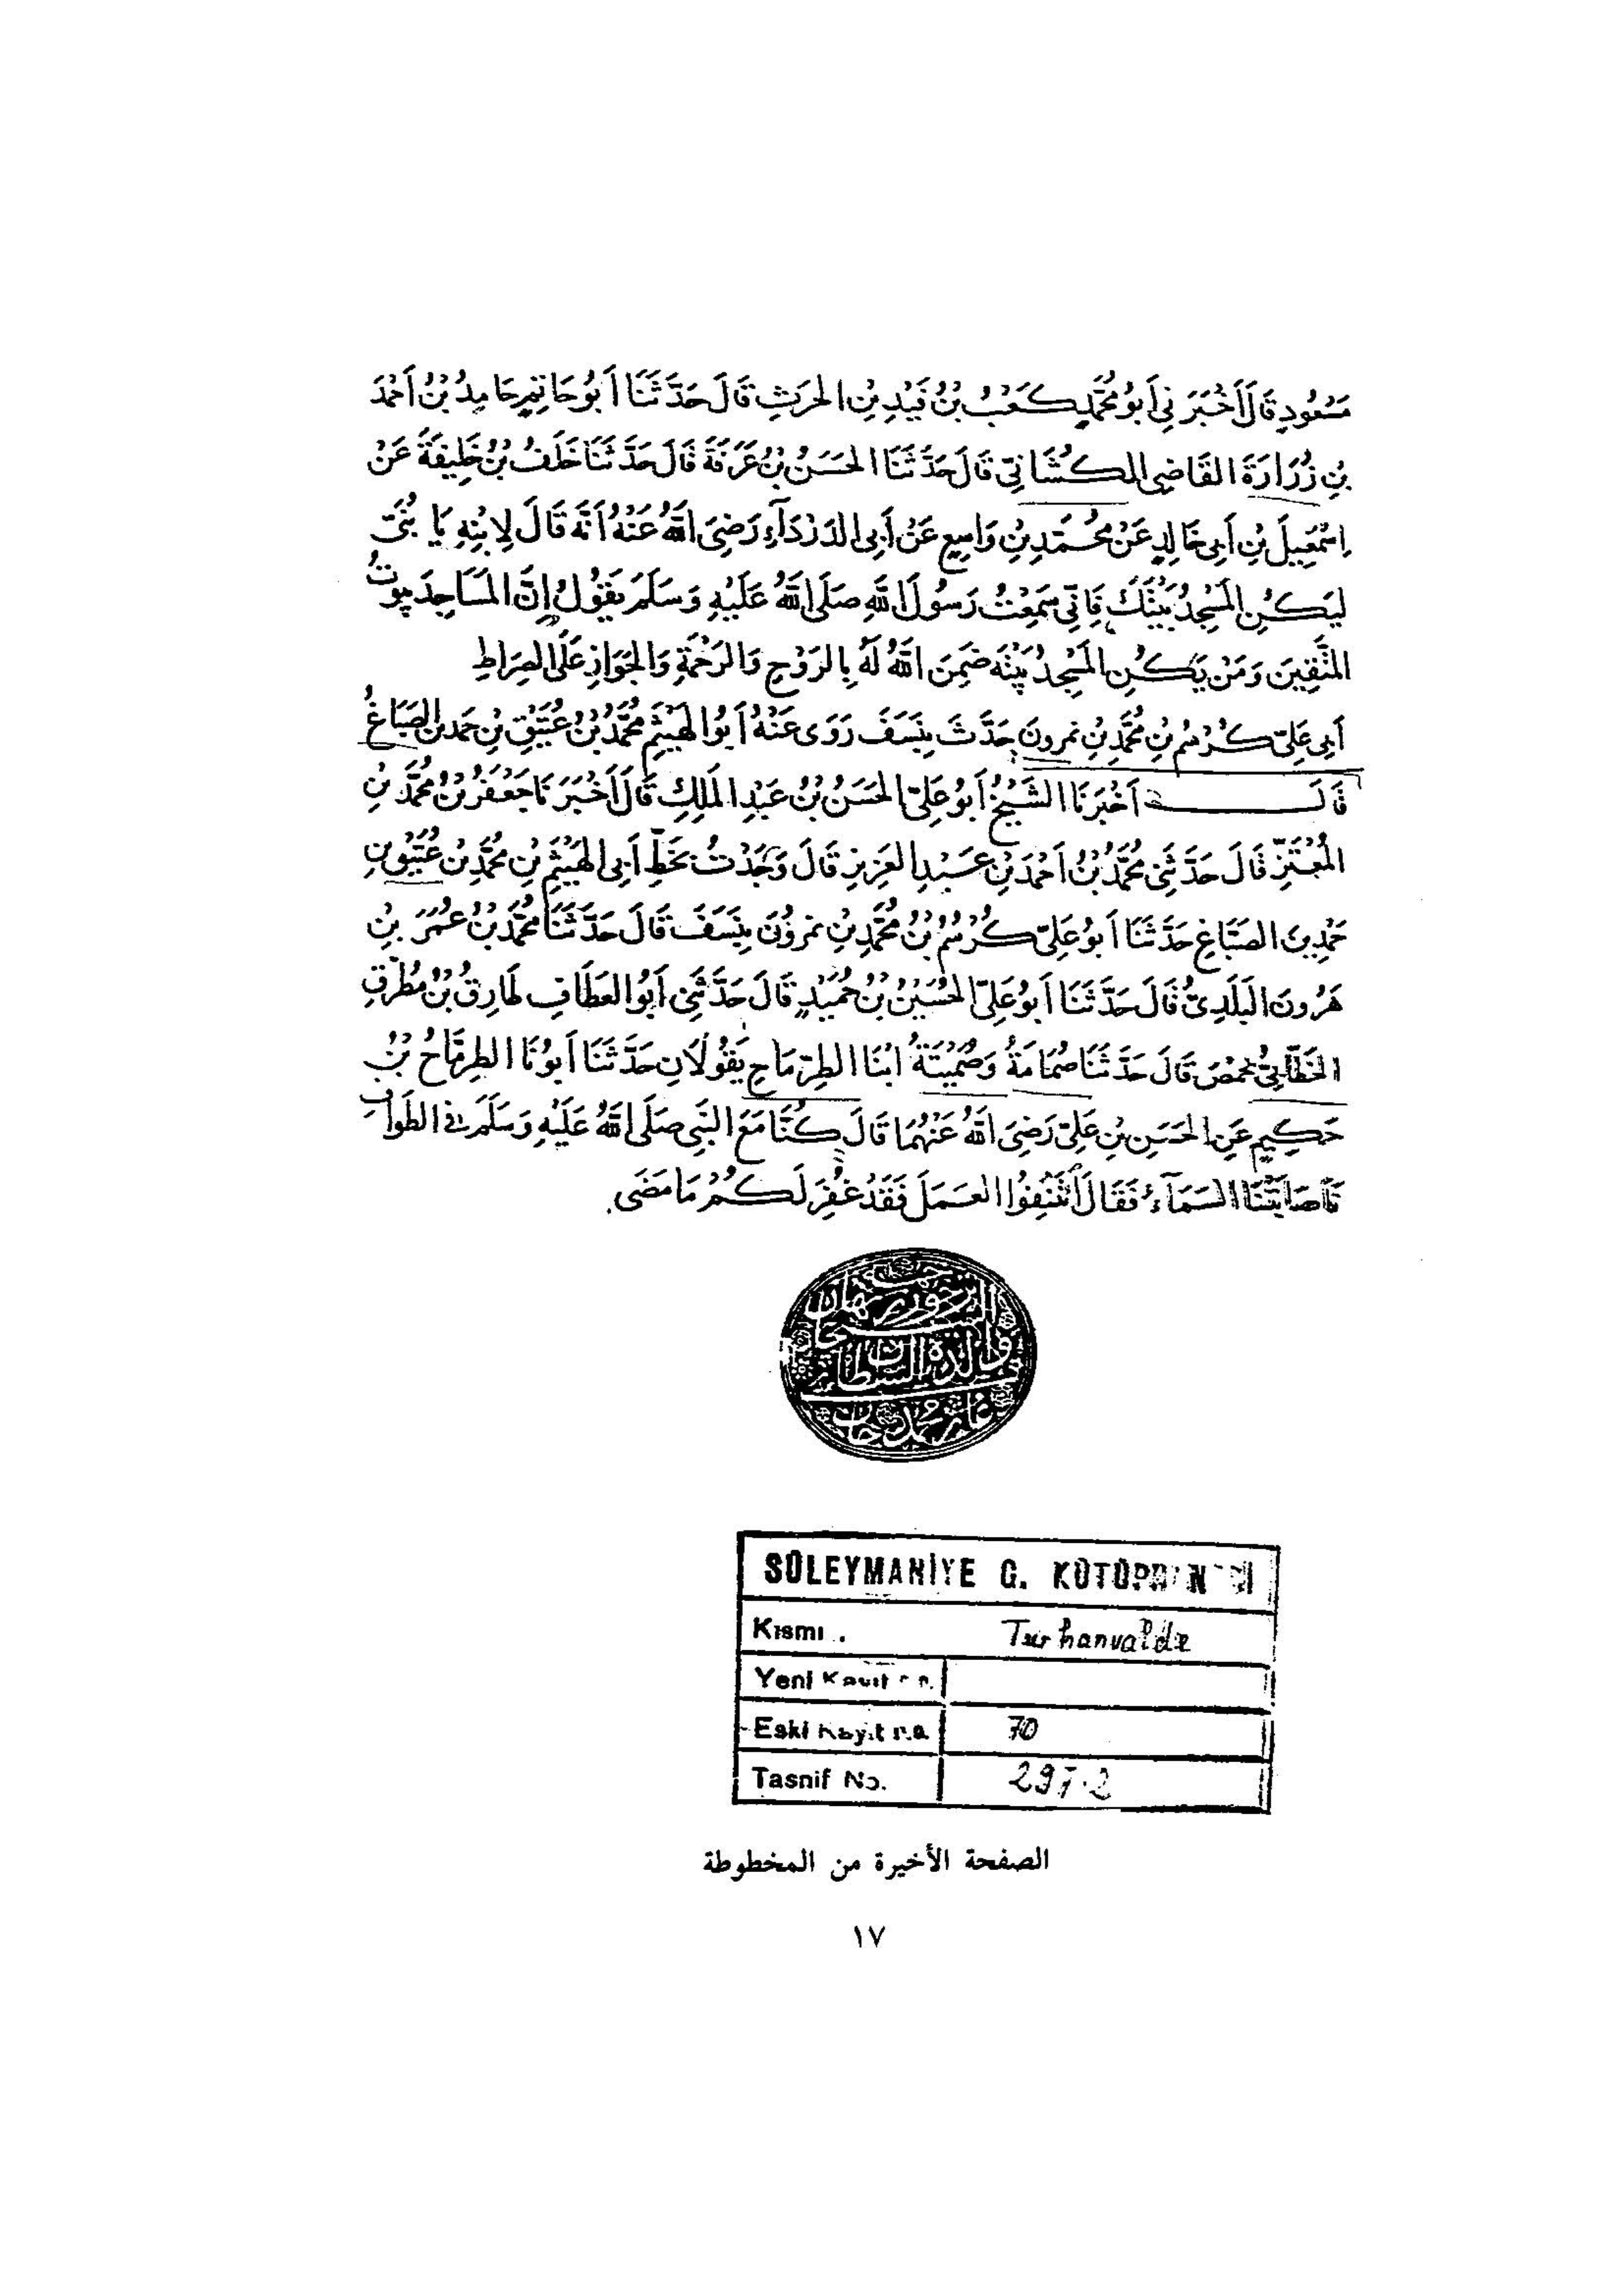 مَسْعُودٍ قَالَ أَخْبَرَنِي أَبُو مُحَمَّدٍ كَعْبُ بْنُ قَيْدِ بْنِ الْحَرِثِ قَالَ حَدَّثَنَا أَبُو حَاتِمٍ حَامِدُ بْنُ أَحْمَدَ
بْنِ زُرَارَةَ القَاضِي الكُشَانِيّ قَالَ حَدَّثَنَا الْحَسَنُ بْنُ عَرَفَةَ قَالَ حَدَّثَنَا خَلَفُ بْنُ خَلِيفَةَ عَنْ
اِسْمَعِيلَ بْنِ أَبِي خَالِدٍ عَنْ مُحَمَّدِ بْنِ وَاسِعٍ عَنْ أَبِي الدَرْدَآءِ رَضِيَ اللهُ عَنْهُ أَنَّهُ قَالَ لِابْنِهِ يَا بُنَيَّ
لِيَكُنِ المَسْجِدُ بَيْتَكَ فَاِنِّي سَمِعْتُ رَسُولَ اللهِ صَلَّى اللهُ عَلَيْهِ وَسَلَّمَ يَقُولُ إِنَّ الْمَسَاجِدَ بُيُوتُ
المُتَّقِينَ وَمَنْ يَكُنِ المَسْجِدُ بَيْتَهُ ضَمِنَ اللهُ لَهُ بِالرَوْحِ وَالرَحْمَةِ وَالجَوَازِ عَلَى الصِرَاطِ
أَبِي عَلِيّ كُرْسُم بْنِ مُحَمَّدِ بْنِ نمرون حَدَّثَ بِنَسَفَ رَوَى عَنْهُ أَبُو الهَيْثَمِ مُحَمَّدُ بْنُ عُتَيْقِ بْنِ حَمدن الصَبَّاغُ
قَالَ أَخْبَرَنَا الشَيْخُ أَبُو عَلِيّ الْحَسَنُ بْنُ عَبْدِ المَلِكِ قَالَ أَخْبَرَنَا جَعْفَرُ بْنُ مُحَمَّدِ بْنِ
المُعْتَزِّ قَالَ حَدَّثَنِي مُحَمَّدُ بْنُ أَحْمَدَ بْنِ عَبْدِ العَزِيزِ قَالَ وَجَدْتُ بِخَطِّ أَبِي الهَيْثَمِ بْنِ مُحَمَّدِ بْنِ
الصَبَّاغِ حَدَّثَنَا أَبُو عَلِيّ كُرْسُمُ بْنُ مُحَمَّدِ بْنِ نمرُونَ بِنَسَفَ قَالَ حَدَّثَنَا مُحَمَّدُ بْنُ عُمَرَ بِنِ
هَرُونَ البَلَدِيُّ قَالَ حَدَّثَنَا أَبُو عَلِيّ الحُسَيْنُ بْنُ حُمَيْدٍ قَالَ حَدَّثَنِي أَبُو العَطَّافِ طَارِقُ بْنُ مُطَرِّقِ
بِحِمْصَ قَالَ حَدَّثَنَا صُمَامَةُ وَضُمَيْنَةُ ابْنَا الطِرِمَّاحِ يَقُولَانِ حَدَّثَنَا أَبُونَا الطِرِمَّاحُ بْنُ
حَكِيمٍ عَنِ الحَسَنِ بْنِ عَلِيّ رَضِيَ اللهُ عَنْهُمَا قَالَ كُنَّا مَعَ النَبِي صَلَّى اللهُ عَلَيْهِ وَسَلَّمَ في الطَوَافِ
فَأَصَابَتْنَا السَمَآءُ فَقَالَ أْتَنِفُوا العَمَلَ فَقَدْ غُفِرَ لَكُمْ مَا مَضَى.
والده السلطان
SÜLEYMANİYE G. KÜTÜPHANESİ
Kısmı. Turhanvalde
Yeni Kayıt no.
Eski Kayıt no. 70
Tasnif No. 297.2
الصفحة الأخيرة من المخطوطة
١٧